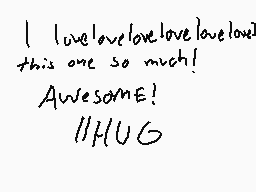 I lovelovelovelovelovelove
this one so much!
AwesomE!
//HUG